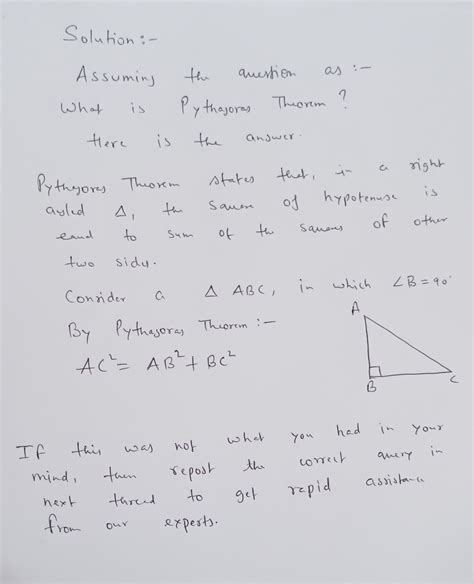 Solution :-
Assuming the question as :-
What is Pythagoras Theorem ?
Here is the answer.
Pythagoras Theorem states that, in a right
angled Δ, the square of hypotenuse is
equal to sum of the squares of other
two sides.
Consider a Δ ABC, in which ∠B = 90°
By Pythagoras Theorem :-
AC² = AB² + BC²
A
B
C
If this was not what you had in your
mind, then repost the correct query in
next thread to get rapid assistance
from our experts.